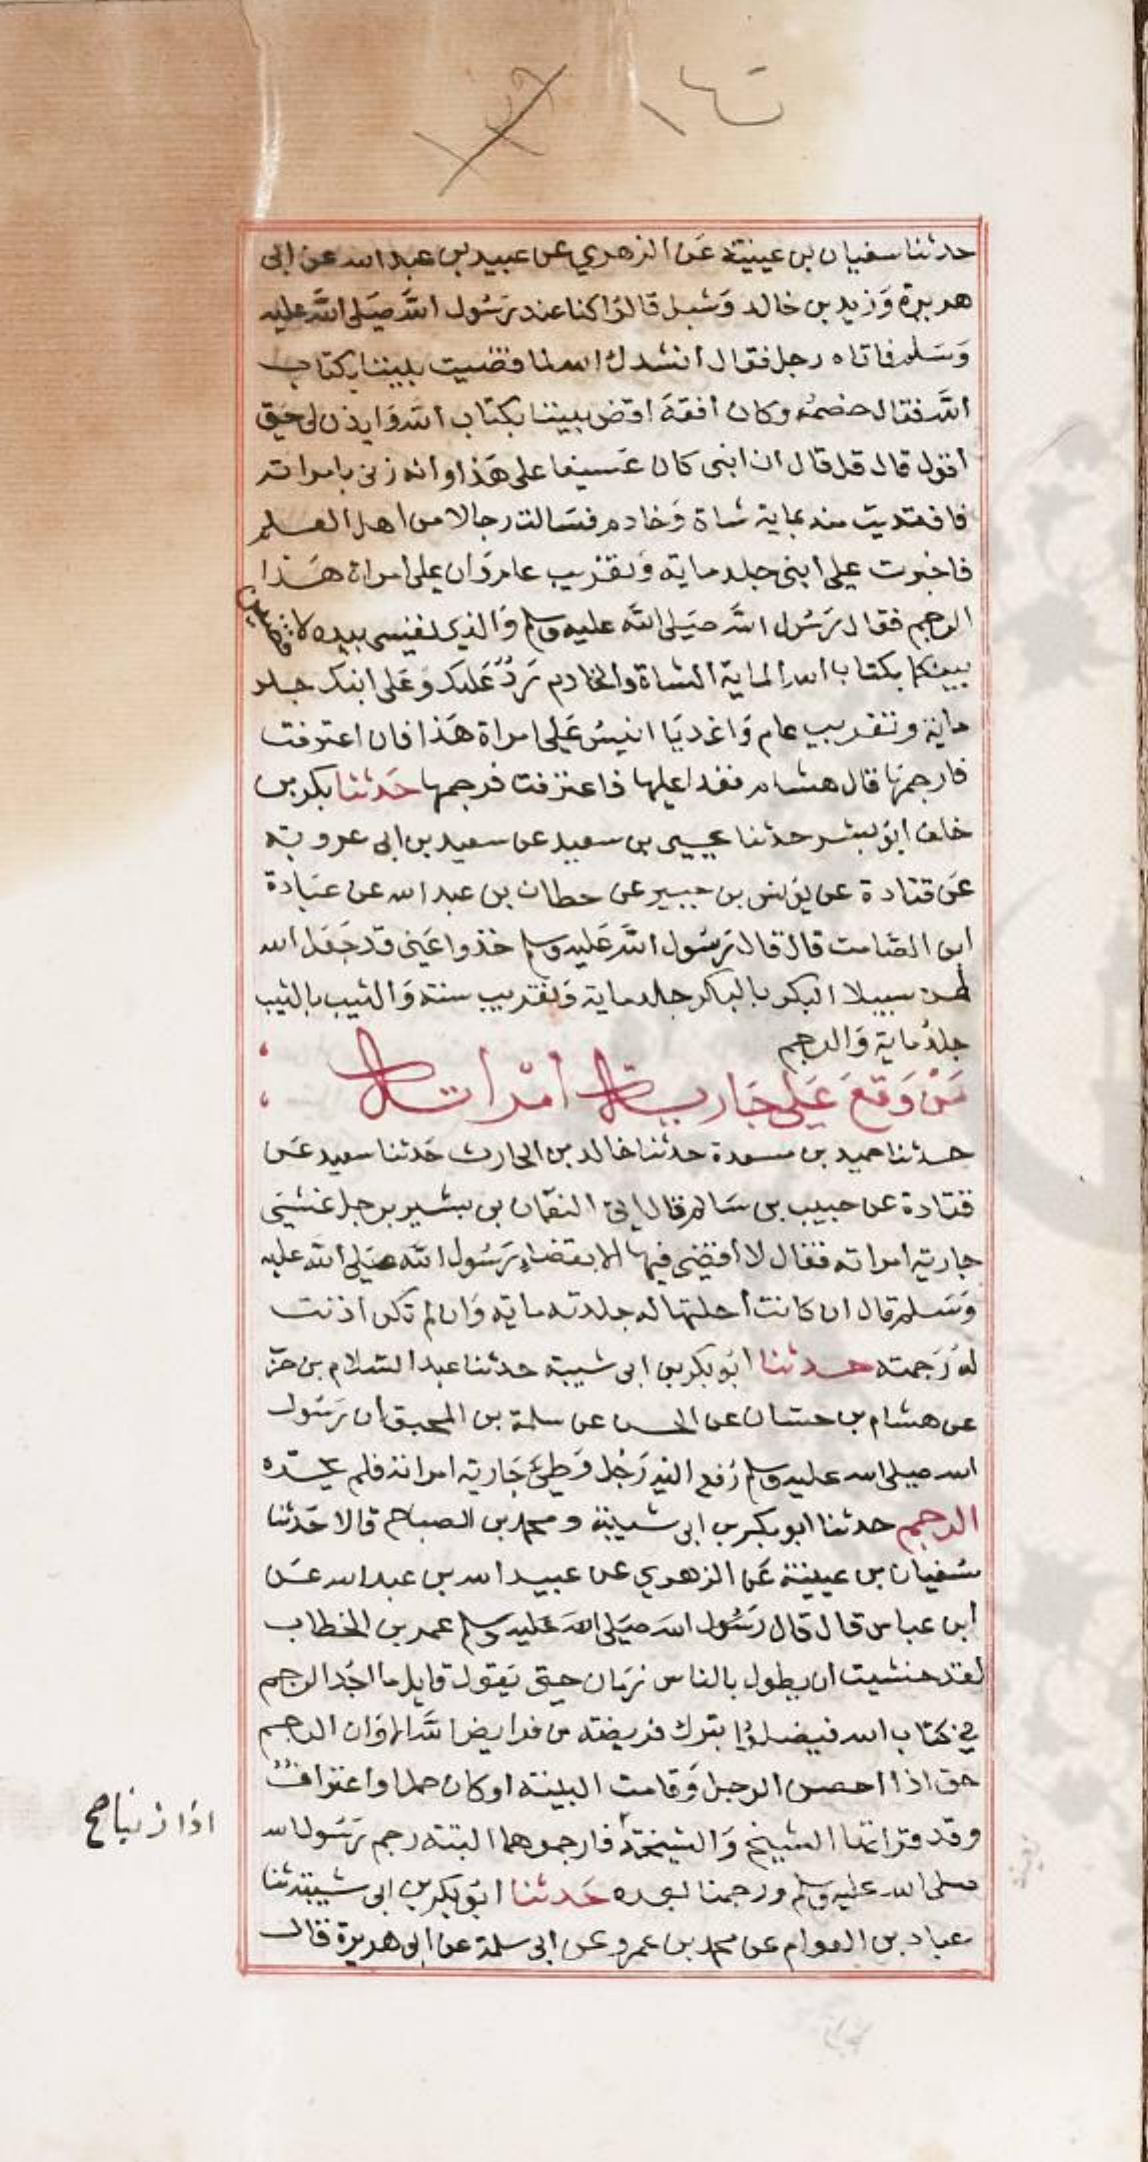 حدثنا سفيان بن عيينة عن الزهري عن عبيد بن عبد الله عن ابى
هريرة وَزيد بن خالد وَشبل قالوٗا كنا عند رَسُول اللَّه صَلى اللَّه عليه
وَسَلم فاتاه رجل فقال انشدك الله لما قضيت بيننا بكتاب
اللَّه فقال خصمُه وكان افقهَ اقض بيننا بكتاب اللَّه وَايذن لى حتى
اقول قال قل قال ان ابنى كان عَسيفا على هَذا وانه زنى بامراته
فافتديت منه بماية شاة وَخادم فسَالت رجالا من اهل العلم
فاخبرت على ابنى جلد ماية وَتغريب عام وَان على امراة هَذا
الرجم فقال رَسُول اللَّه صَلى اللَّه عليه وسلم وَالذي نفسى بيده لاقضين
بينكما بكتاب الله الماية الشاة والخادم رَدٌّ عَليك وَعَلى ابنك جلد
ماية وتغريب عام وَاغد يَا انيسُ عَلى امراة هَذا فان اعترفت
فارجمهَا قال هشام فغدا عليها فاعترفت فرجمها حَدثنا بكر بن
خلف ابوٗ بشر حدثنا يحيى بن سعيد عن سعيد بن ابى عروبة
عَن قتادة عن يوٗنس بن جبير عن حطان بن عبد الله عن عبَادة
ابن الصَّامت قال قال رَسُول اللَّه عَليه وسلم خذوا عَنى قد جَعَل الله
لهن سبيلا البكر بالبكر جلد ماية وَتغريب سنة وَالثيب بالثيب
جلدُ ماية وَالرجم
مَنْ وَقعَ عَلى جَارية امرَاته
حدثنا حميد بن مسعدة حدثنا خالد بن الحارث حَدثنا سعيد عَن
قتادة عن حبيب بن سَالم قال اتى النعْمان بن بشير برجل غشى
جارية امراته فقال لا أقضى فيها الا بقضاءِ رَسُول اللَّه صَلى اللَّه عليه
وَسَلم قال ان كانت أحلتها له جلدته ماية وَان لم تكن أذنت
لهُ رَجمته حدثنا ابوٗ بكر بن ابى شيبة حدثنا عبد السَّلام بن حرْ
عن هشام بن حسَّان عن الحسن عن سلمة بن المحبق ان رَسُول
الله صلى الله عليه وسلم رُفع اليه رَجُل وَطِئَ جَارية امراته فلم يحَدّه
الرجم حدثنا ابو بكر بن ابى شيبة ومحمد بن الصباح قالا حَدثنا
سُفيان بن عيينة عَن الزهري عن عبيد الله بن عبد الله عَن
ابن عباس قال قال رَسُول الله صَلى اللهَ عَليه وسلم عمر بن الخطاب
لقد خشيت ان يطول بالناس زمَان حتى يَقول قايل ما اجدُ الرجم
في كتاب الله فيضلوٗا بترك فريضة من فرايض اللَّه الا وَان الرجم
حق اذا احصن الرجل وَقامت البينة او كان حمل او اعترافٌ
وقد قراتها الشيخ وَالشيخة فارجموهما البتة رجم رَسُول الله
اذا زنيا صح
صلى الله عليه وسلم ورجمنا بعده حَدثنا ابوٗ بكر بن ابى شيبة ثنا
عباد بن العوام عن محمد بن عمرو عن ابى سلمة عن ابى هريرة قال